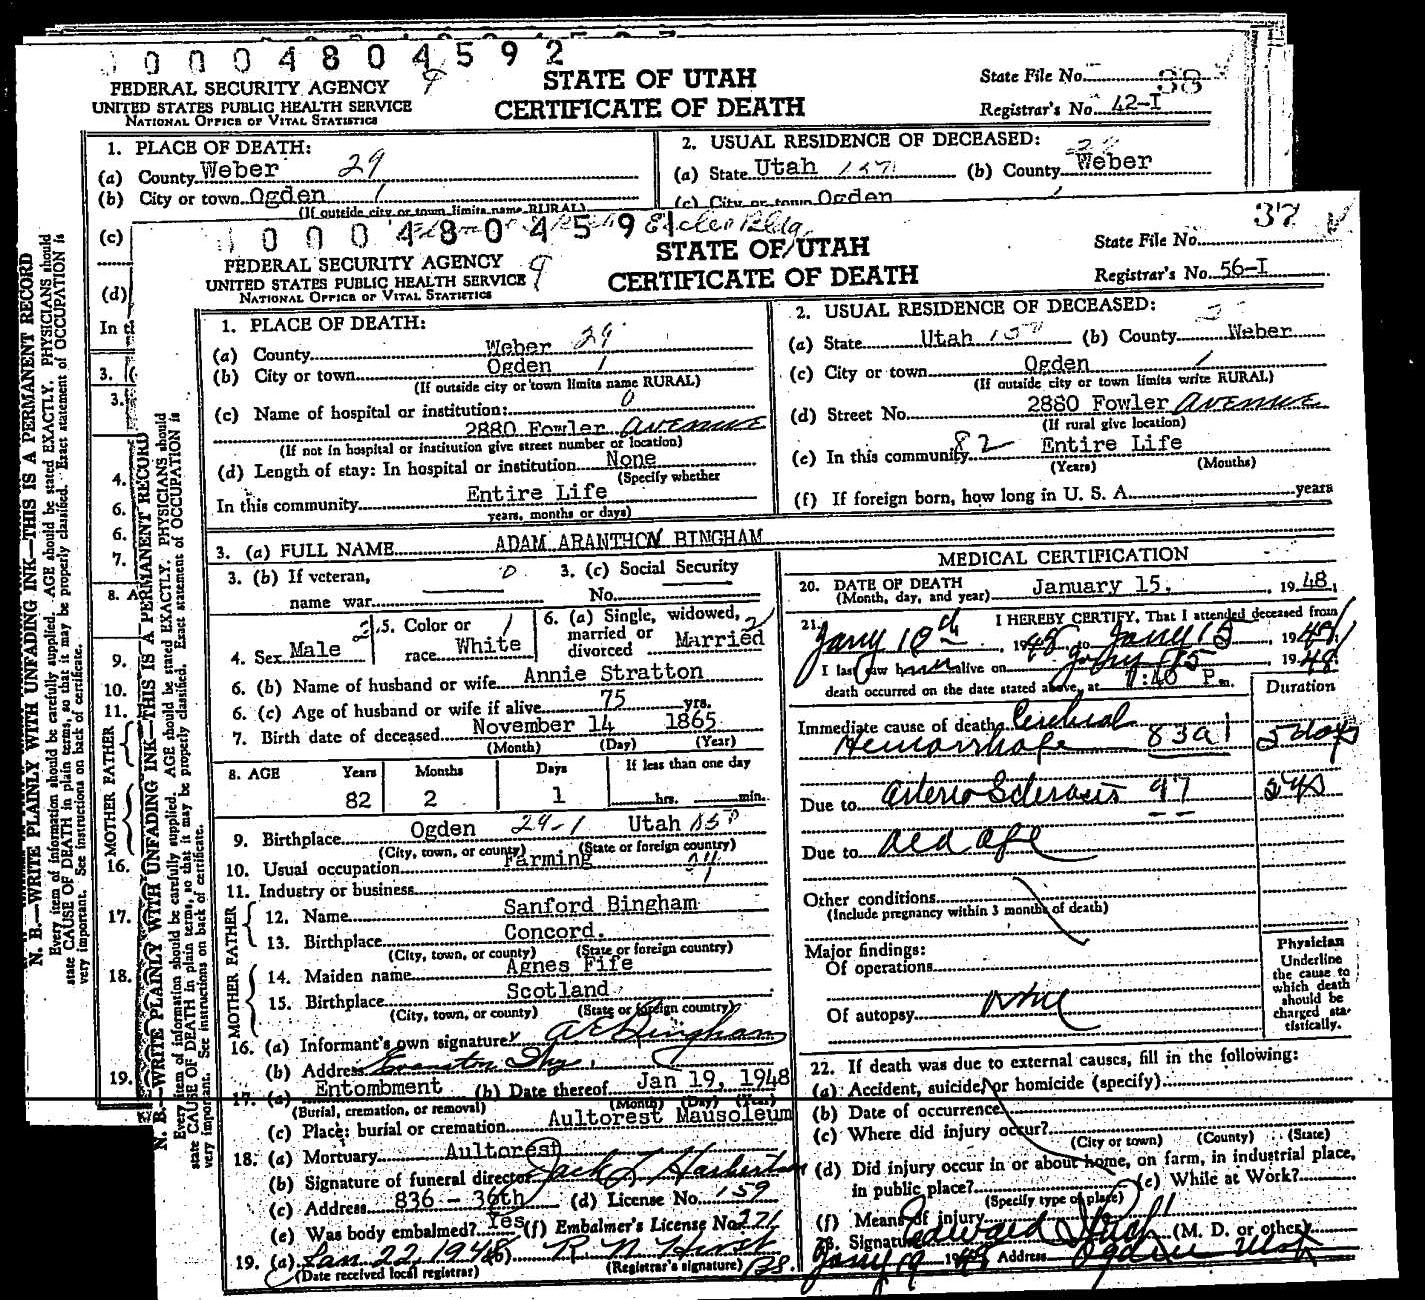 0 0 0 4 8 0 4 5 9 2
FEDERAL SECURITY AGENCY
UNITED STATES PUBLIC HEALTH SERVICE
NATIONAL OFFICE OF VITAL STATISTICS
9
STATE OF UTAH
CERTIFICATE OF DEATH
State File No.
38
Registrar's No. 42-I
1. PLACE OF DEATH:
(a) County Weber 29
(b) City or town Ogden 1
(If outside city or town limits name RURAL)
2. USUAL RESIDENCE OF DECEASED:
(a) State Utah (b) County Weber
(c) City or town Ogden
(c)
(d)
In th
3. (
3.
4.
6.
6.
7.
8. A
9.
10.
11.
MOTHER FATHER
16.
17.
18.
19.
N. B.—WRITE PLAINLY WITH UNFADING INK—THIS IS A PERMANENT RECORD
Every item of information should be carefully supplied. AGE should be stated EXACTLY. PHYSICIANS should
state CAUSE OF DEATH in plain terms, so that it may be properly classified. Exact statement of OCCUPATION is
very important. See instructions on back of certificate.
Eccles Bldg.
0 0 0 4 8 0 4 5 9 1
FEDERAL SECURITY AGENCY
UNITED STATES PUBLIC HEALTH SERVICE
NATIONAL OFFICE OF VITAL STATISTICS
9
STATE OF UTAH
CERTIFICATE OF DEATH
State File No. 37
Registrar's No. 56-I
N. B.—WRITE PLAINLY WITH UNFADING INK—THIS IS A PERMANENT RECORD
Every item of information should be carefully supplied. AGE should be stated EXACTLY. PHYSICIANS should
state CAUSE OF DEATH in plain terms, so that it may be properly classified. Exact statement of OCCUPATION is
very important. See instructions on back of certificate.
1. PLACE OF DEATH:
(a) County Weber 29
(b) City or town Ogden 1
(If outside city or town limits name RURAL)
(c) Name of hospital or institution: 0
2880 Fowler Avenue
(If not in hospital or institution give street number or location)
(d) Length of stay: In hospital or institution None
(Specify whether
In this community Entire Life
years, months or days)
2. USUAL RESIDENCE OF DECEASED:
(a) State Utah (b) County Weber
(c) City or town Ogden 1
(If outside city or town limits write RURAL)
(d) Street No. 2880 Fowler Avenue
(If rural give location)
(e) In this community 82 Entire Life
(Years) (Months)
(f) If foreign born, how long in U. S. A. years
3. (a) FULL NAME ADAM ARANTHON BINGHAM
3. (b) If veteran, 0
name war
3. (c) Social Security
No.
4. Sex Male 2
5. Color or 1
race White
6. (a) Single, widowed, 2
married or
divorced Married
6. (b) Name of husband or wife Annie Stratton
6. (c) Age of husband or wife if alive 75 yrs.
7. Birth date of deceased November 14 1865
(Month) (Day) (Year)
8. AGE Years Months Days If less than one day
82 2 1 hrs. min.
9. Birthplace Ogden 29-1 Utah
(City, town, or county) (State or foreign country)
10. Usual occupation Farming
11. Industry or business
FATHER
12. Name Sanford Bingham
13. Birthplace Concord.
(City, town, or county) (State or foreign country)
MOTHER
14. Maiden name Agnes Fife
15. Birthplace Scotland
(City, town, or county) (State or foreign country)
16. (a) Informant's own signature A E Bingham
(b) Address Evanston Wyo.
17. (a) Entombment (b) Date thereof Jan 19, 1948
(Burial, cremation, or removal) (Month) (Day) (Year)
(c) Place; burial or cremation Aultorest Mausoleum
18. (a) Mortuary Aultorest
(b) Signature of funeral director Jack L Harbertson
(c) Address 836 - 36th (d) License No. 159
(e) Was body embalmed? Yes (f) Embalmer's License No. 271
19. (a) Jan 22, 1948 (b) R N Hirst
(Date received local registrar) (Registrar's signature) BS.
MEDICAL CERTIFICATION
20. DATE OF DEATH January 15, 1948
(Month, day, and year)
21. I HEREBY CERTIFY, That I attended deceased from
Jany 10th, 1948 to Jany 15, 1948
I last saw him alive on Jany 15, 1948
death occurred on the date stated above, at 1:40 P m.
Duration
Immediate cause of death Cerebral
Hemorrhage 83a 5 days
Due to Arterio Sclerosis 97 2 yrs
Due to Old age
Other conditions
(Include pregnancy within 3 months of death)
Major findings:
Of operations
Of autopsy None
Physician
Underline
the cause to
which death
should be
charged sta-
tistically.
22. If death was due to external causes, fill in the following:
(a) Accident, suicide, or homicide (specify)
(b) Date of occurrence
(c) Where did injury occur?
(City or town) (County) (State)
(d) Did injury occur in or about home, on farm, in industrial place,
in public place? (e) While at Work?
(Specify type of place)
(f) Means of injury
23. Signature Edward (M. D. or other)
Jany 19 1948 Address Ogden Utah